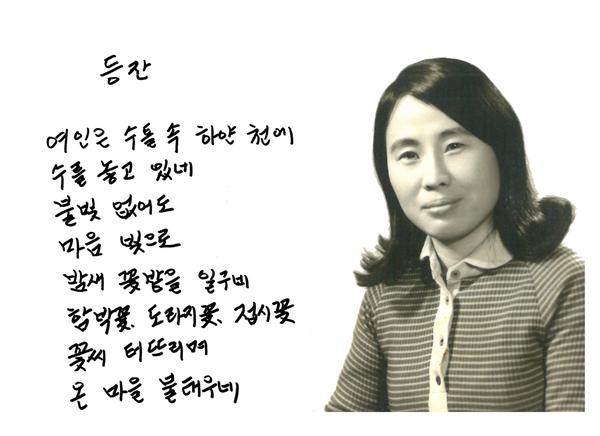 등잔
여인은 수틀 속 하얀 천에
수를 놓고 있네
불빛 없어도
마음 빛으로
밤새 꽃밭을 일구네
함박꽃, 도라지꽃, 접시꽃
꽃씨 터뜨리며
온 마을 불태우네